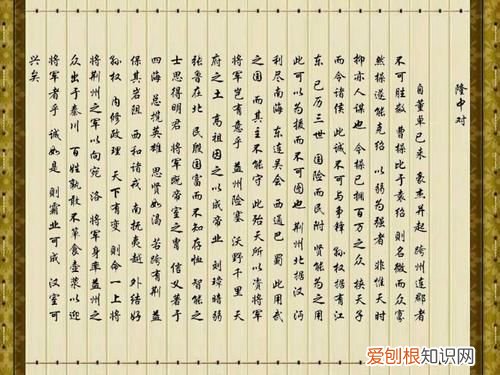 隆中对
自董卓已来 豪杰并起 跨州连郡者
不可胜数 曹操比于袁绍 则名微而众寡
然操遂能克绍 以弱为强者 非惟天时
抑亦人谋也 今操已拥百万之众 挟天子
而令诸侯 此诚不可与争锋 孙权据有江
东 已历三世 国险而民附 贤能为之用
此可以为援而不可图也 荆州北据汉 沔
利尽南海 东连吴会 西通巴 蜀 此用武
之国 而其主不能守 此殆天所以资将军
将军岂有意乎 益州险塞 沃野千里 天
府之土 高祖因之以成帝业 刘璋暗弱
张鲁在北 民殷国富而不知存恤 智能之
士思得明君 将军既帝室之胄 信义著于
四海 总揽英雄 思贤如渴 若跨有荆 益
保其岩阻 西和诸戎 南抚夷越 外结好
孙权 内修政理 天下有变 则命一上将
将荆州之军以向宛 洛 将军身率益州之
众出于秦川 百姓孰敢不箪食壶浆以迎
将军者乎 诚如是 则霸业可成 汉室可
兴矣
爱刨根知识网
www.baogenzhishiwang.com